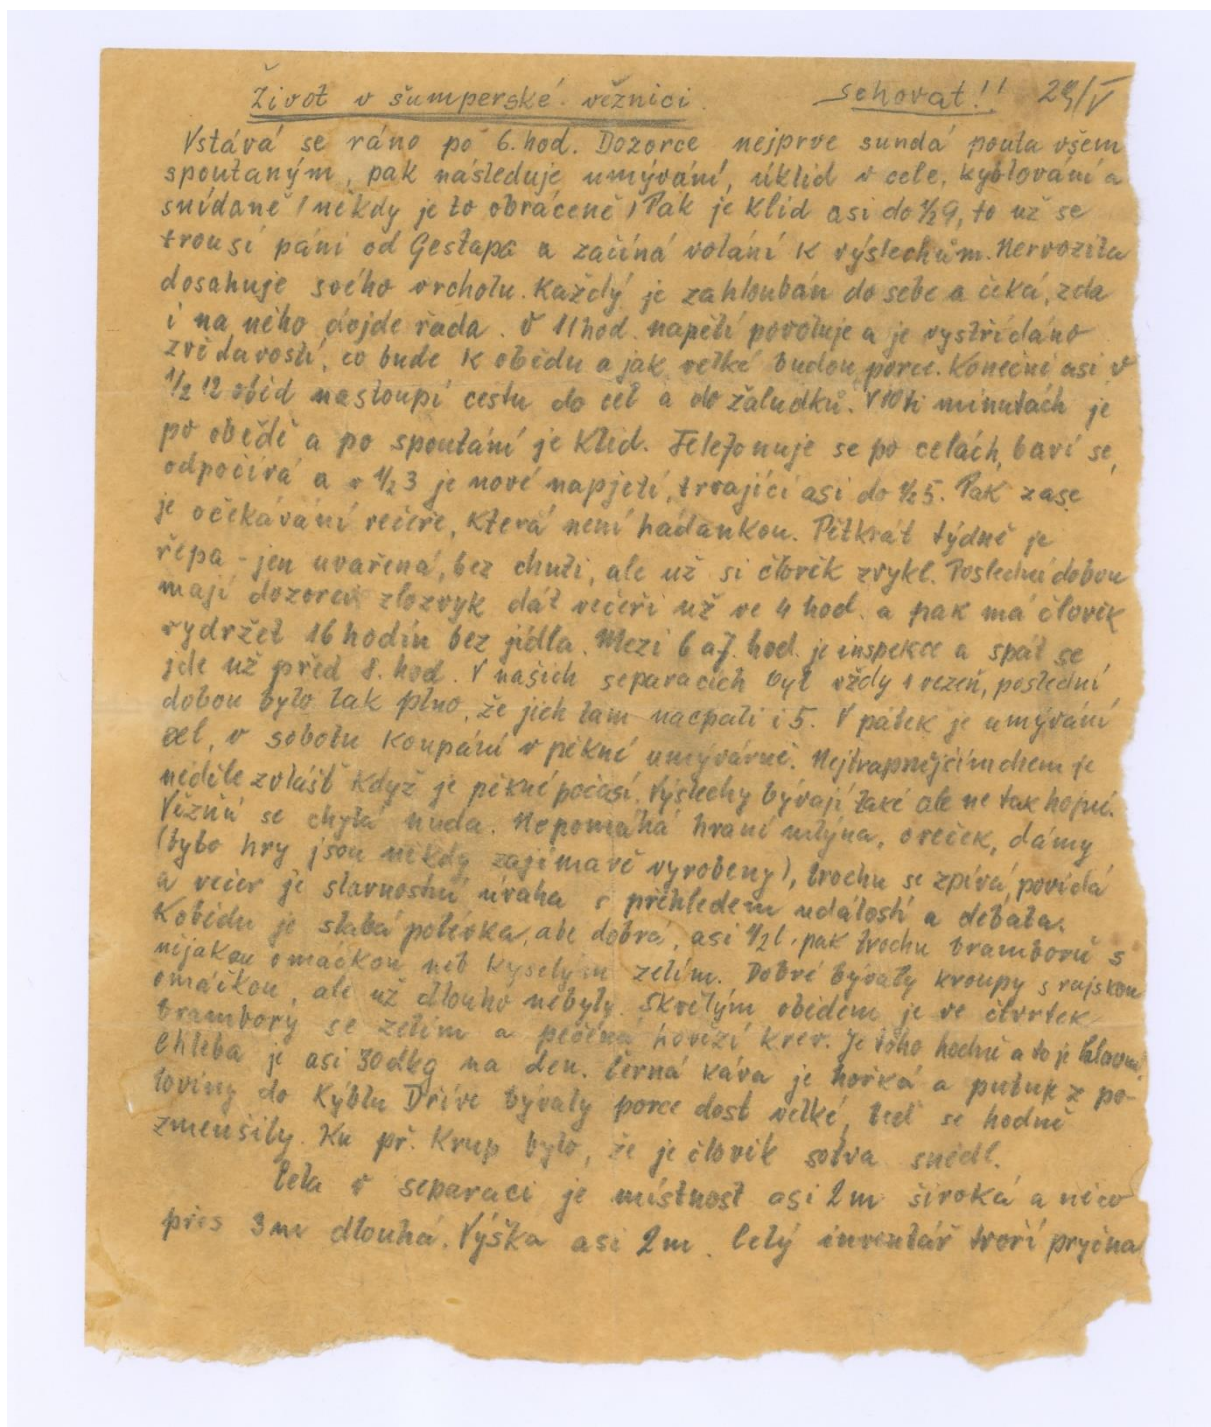 Život v šumperské věznici. schovat!! 29/V
Vstává se ráno po 6. hod. Dozorce nejprve sundá pouta všem
spoutaným, pak následuje umývání, úklid v cele, kýblování a
snídaně (někdy je to obráceně) Pak je klid asi do ½9, to už se
trousí páni od Gestapa a začíná volání k výslechům. Nervozita
dosahuje svého vrcholu. Každý je zahloubán do sebe a čeká, zda
i na něho dojde řada. V 11 hod. napětí povoluje a je vystřídáno
zvědavostí, co bude k obědu a jak velké budou porce. Konečně asi v
½ 12 oběd nastoupí cestu do cel a do žaludků. V 10ti minutách je
po obědě a po spoutání je klid. Telefonuje se po celách, baví se,
odpočívá a v ½ 3 je nové napjetí, trvající asi do ½5. Pak zase
je očekávání večeře, která není hádankou. Pětkrát týdně je
řepa - jen uvařená, bez chuti, ale už si člověk zvykl. Poslední dobou
mají dozorci zlozvyk dát večeři už ve 4 hod. a pak má člověk
vydržet 16 hodin bez jídla. Mezi 6 a 7. hod. je inspekce a spát se
jde už před 8. hod. V našich separacích byl vždy 1 vězeň, poslední
dobou bylo tak plno, že jich tam nacpali i 5. V pátek je umývání
cel, v sobotu koupání v pěkné umývárně. Nejtrapnějším dnem je
neděle zvlášť když je pěkné počasí. Výslechy bývají také ale ne tak hojné.
Vězňů se chytá nuda. Nepomáhá hraní mlýna, oveček, dámy
(tyto hry jsou někdy zajímavě vyrobeny), trochu se zpívá, povídá
a večer je slavnostní úvaha s přehledem událostí a debata.
K obědu je slabá polévka, ale dobrá, asi ½ l. pak trochu bramborů s
nějakou omáčkou neb kyselým zelím. Dobré bývaly kroupy s rajskou
omáčkou, ale už dlouho nebyly. Skvělým obědem je ve čtvrtek
brambory se zelím a pečená hovězí krev. Je toho hodně a to je hlavní.
Chleba je asi 30 dkg na den. Černá káva je hořká a putuje z po-
loviny do kýblu Dříve bývaly porce dost velké, teď se hodně
zmenšily. Ku př. krup bylo, že je člověk sotva snědl.
Cela v separaci je místnost asi 2m široká a něco
přes 3m dlouhá. Výška asi 2m. Celý inventář tvoří pryčna